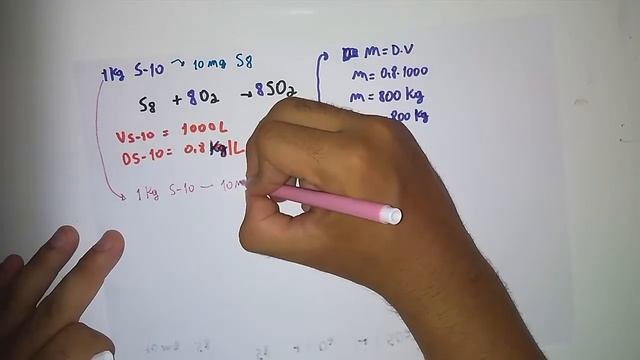 1 Kg S-10 → 10 mg S8
S8 + 8O2 → 8SO2
VS-10 = 1000 L
DS-10 = 0.8 Kg/L
1 Kg S-10 — 10 m
m = D.V
m = 0,8.1000
m = 800 Kg
800 Kg